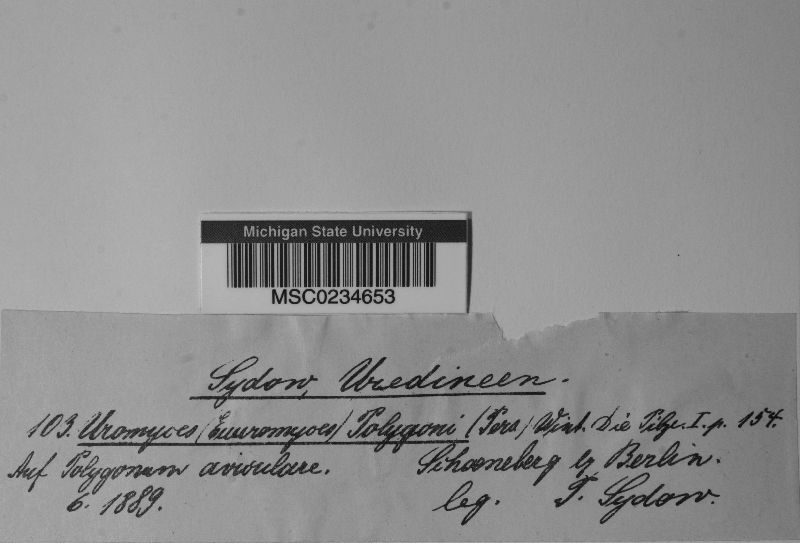 Michigan State University
MSC0234653
Sydow, Uredineen.
103. Uromyces (Euuromyces) Polygoni (Pers.) Wint. Die Pilze. I. p. 154.
Auf Polygonum aviculare. Schoeneberg by Berlin.
6. 1889. leg. P. Sydow.